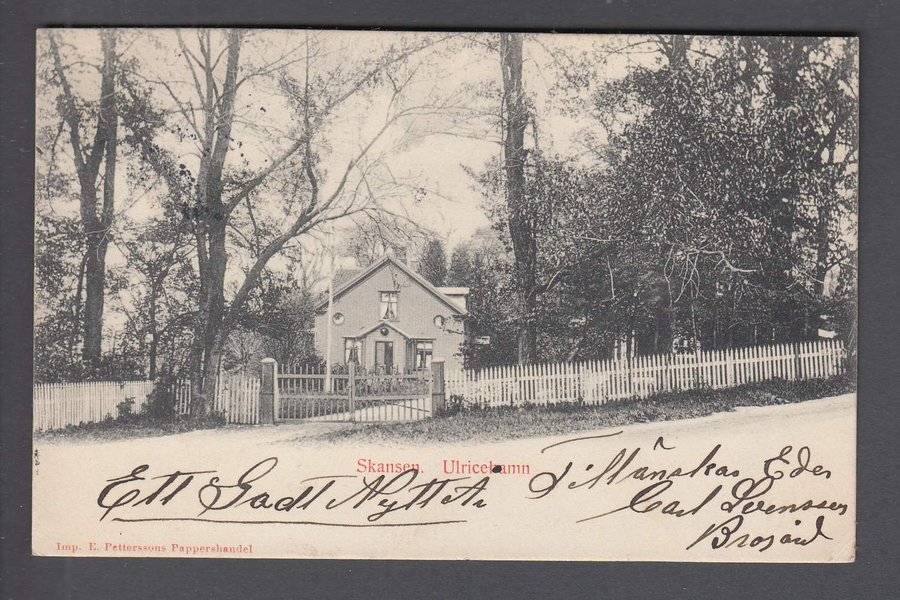 Skansen. Ulricehamn
Ett Godt Nytt År Tillönskas Eder
Carl Svensson
Imp. E. Petterssons Pappershandel